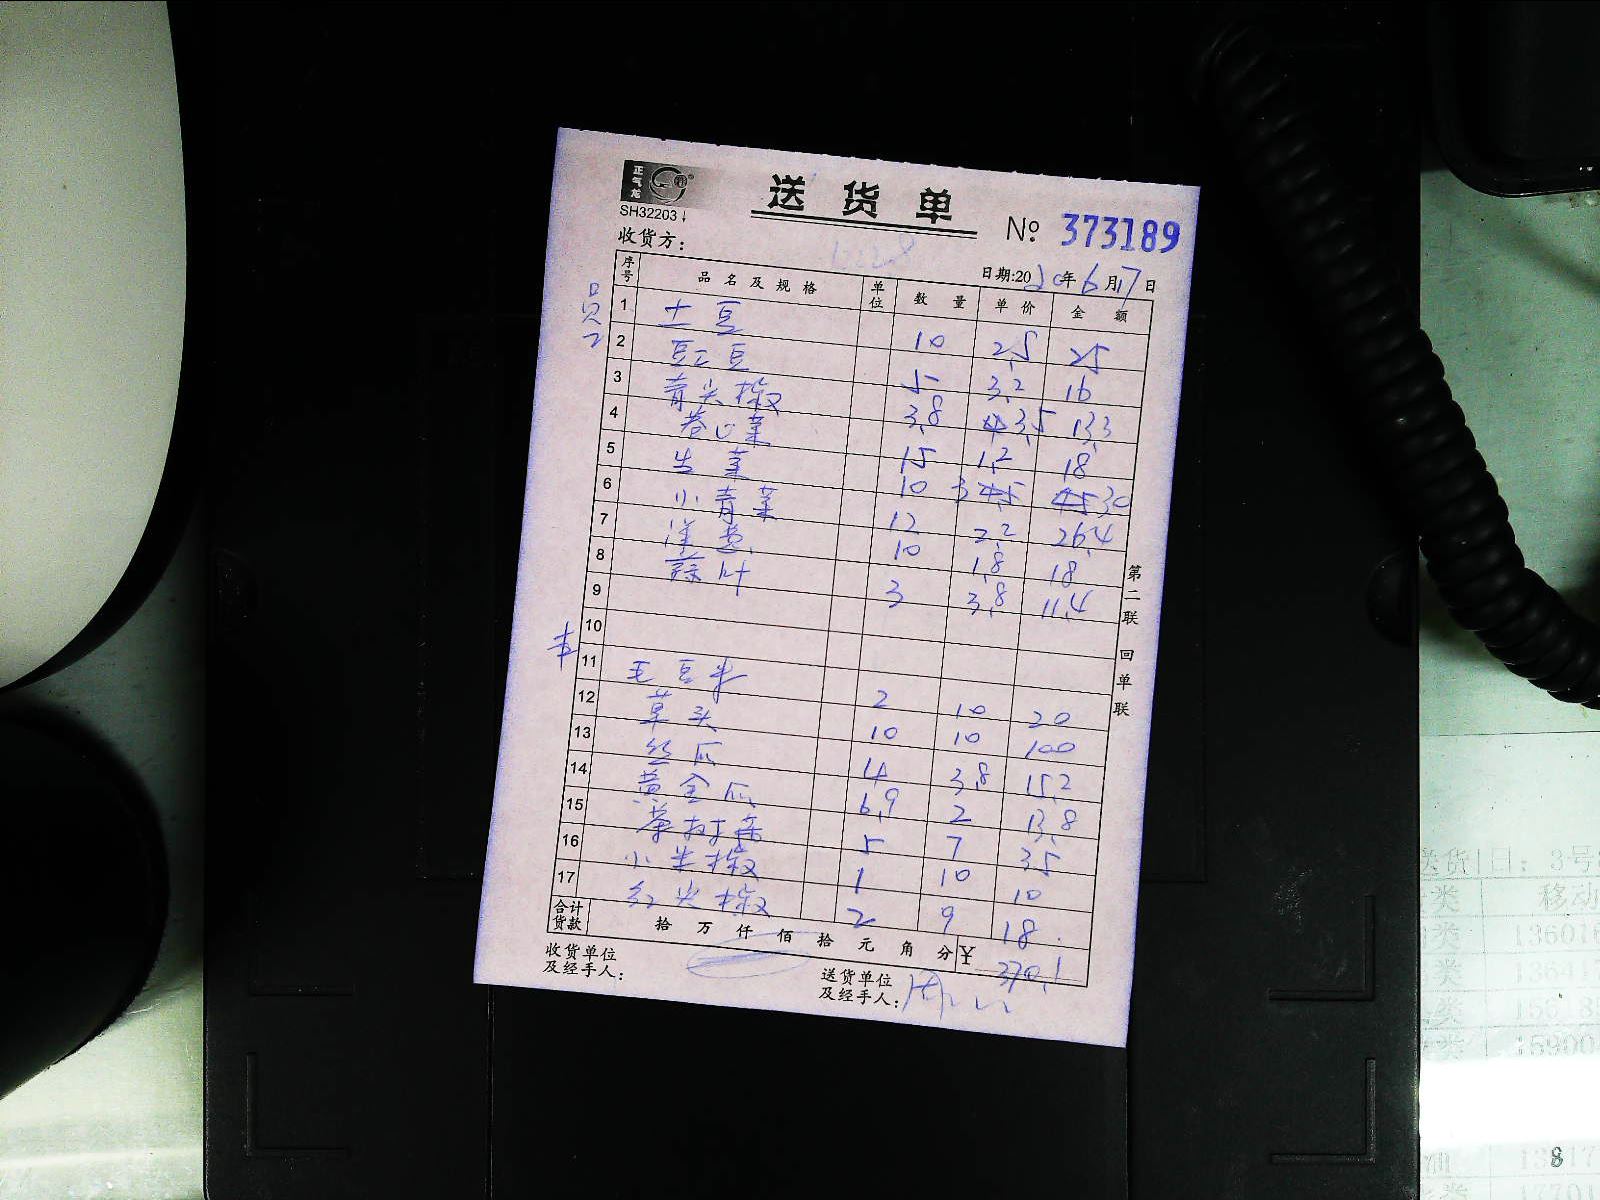 正气龙
SH32203
送货单
№ 373189
收货方：
日期:2020年6月17日
序号 品名及规格 单位 数量 单价 金额
员工
1 土豆 10 2.5 25
2 豇豆 5 3.2 16
3 青尖椒 3.8 3.5 13.3
4 卷心菜 15 1.2 18
5 生菜 10 3 30
6 小青菜 12 2.2 26.4
7 洋葱 10 1.8 18
8 蒜叶 3 3.8 11.4
9
10
11 毛豆米 2 10 20
12 草头 10 10 100
13 丝瓜 4 3.8 15.2
14 黄金瓜 6.9 2 13.8
15 茶树菇 5 7 35
16 小米椒 1 10 10
17 红尖椒 2 9 18
合计货款 拾 万 仟 佰 拾 元 角 分 ￥ 370.1
收货单位及经手人：
送货单位及经手人：
第二联 回单联
送货 日：3号
类 移动
类
类